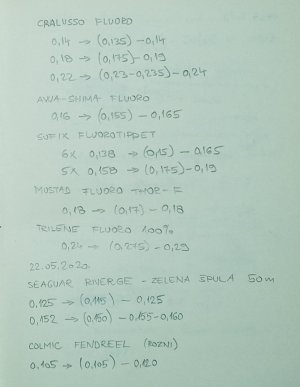 CRALUSSO FLUORO
0,14 → (0,135) - 0,14
0,18 → (0,175) - 0,19
0,22 → (0,23-0,235) - 0,24
AWA-SHIMA FLUORO
0,16 → (0,155) - 0,165
SUFIX FLUOROTIPPET
6X 0,138 → (0,15) - 0,165
5X 0,158 → (0,175) - 0,19
MUSTAD FLUORO THOR-F
0,18 → (0,17) - 0,18
TRILENE FLUORO 100%
0,24 → (0,275) - 0,29
22.05.2020.
SEAGUAR RIVERGE - ZELENA ŠPULA 50m
0,125 → (0,115) - 0,125
0,152 → (0,150) - 0,155-0,160
COLMIC FENDREEL (ROZNI)
0,105 → (0,105) - 0,120